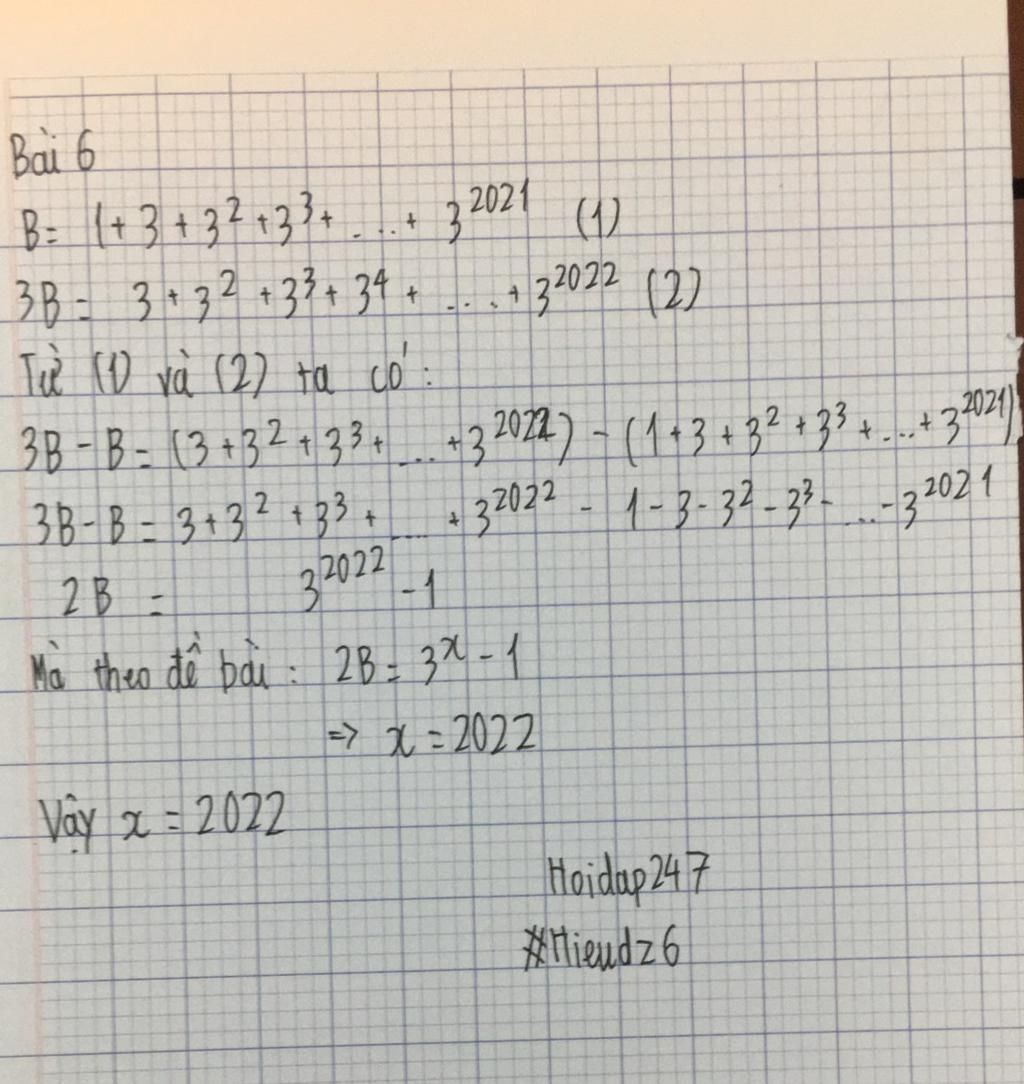 Bài 6
B = 1 + 3 + 3² + 3³ + .... + 3²⁰²¹ (1)
3B = 3 + 3² + 3³ + 3⁴ + .... + 3²⁰²² (2)
Từ (1) và (2) ta có:
3B - B = (3 + 3² + 3³ + .... + 3²⁰²²) - (1 + 3 + 3² + 3³ + ... + 3²⁰²¹)
3B - B = 3 + 3² + 3³ + .... + 3²⁰²² - 1 - 3 - 3² - 3³ - .... - 3²⁰²¹
2B = 3²⁰²² - 1
Mà theo đề bài: 2B = 3ˣ - 1
=> x = 2022
Vậy x = 2022
Hoidap247
#Hieudz6